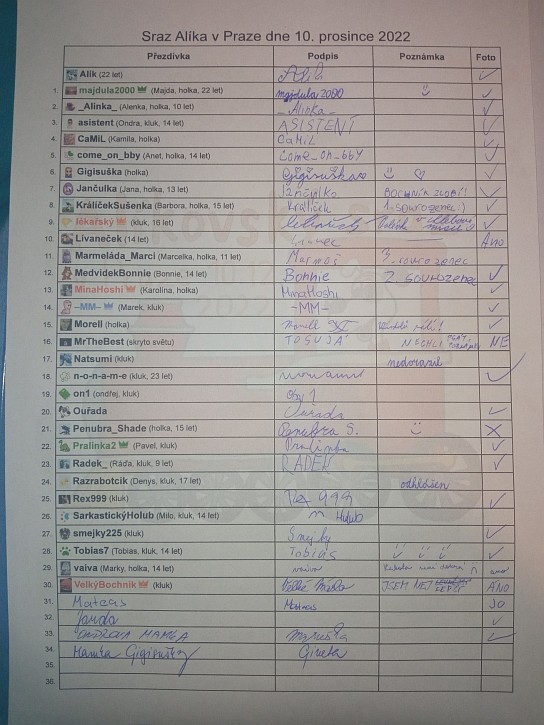 Sraz Alíka v Praze dne 10. prosince 2022
Přezdívka Podpis Poznámka Foto
Alík (22 let) Alík ✓
1. majdula2000 (Majda, holka, 22 let) majdula2000 ✓
2. _Alinka_ (Alenka, holka, 10 let) _Alinka_ ✓
3. asistent (Ondra, kluk, 14 let) ASISTENT ✓
4. CaMiL (Kamila, holka) CaMiL ✓
5. come_on_bby (Anet, holka, 14 let) come_on_bby ✓
6. Gigisuška (holka) Gigisuška ✓
7. Jančulka (Jana, holka, 13 let) BOCHNÍK ZLOBÍ! ✓
8. KrálíčekSušenka (Barbora, holka, 15 let) Králíček 1. sourozenec :) ✓
9. lékařský (kluk, 16 let) ✓
10. Livaneček (14 let) Ano
11. Marmeláda_Marci (Marcelka, holka, 11 let) sourozenec
12. MedvídekBonnie (Bonnie, 14 let) Bonnie 2. sourozenec ✓
13. MinaHoshi (Karolina, holka) MinaHoshi ✓
14. –MM– (Marek, kluk) –MM– ✓
15. Morell (holka) Morell ✓
16. MrTheBest (skryto světu) NECHCI NE
17. Natsumi (kluk) nedorazil
18. n-o-n-a-m-e (kluk, 23 let) ✓
19. on1 (ondřej, kluk)
20. Ouřada Ouřada ✓
21. Penubra_Shade (holka, 15 let) Penubra S. X
22. Pralinka2 (Pavel, kluk) Pralinka ✓
23. Radek_ (Ráďa, kluk, 9 let) RADEK ✓
24. Razrabotcik (Denys, kluk, 17 let) odhlášen
25. Rex999 (kluk) Rex 999 ✓
26. SarkastickýHolub (Milo, kluk, 14 let) Holub
27. smejky225 (kluk) Smejky ✓
28. Tobias7 (Tobias, kluk, 14 let) Tobias ✓
29. vaiva (Marky, holka, 14 let) vaiva ano
30. VelkýBochník (kluk) JSEM NEJ LEPŠÍ ÁNO
31. Mateas Mateas JO
32. Jarda ✓
33. ONDROVA MAMKA ✓
34. Mamka Gigisušky
35.
36.